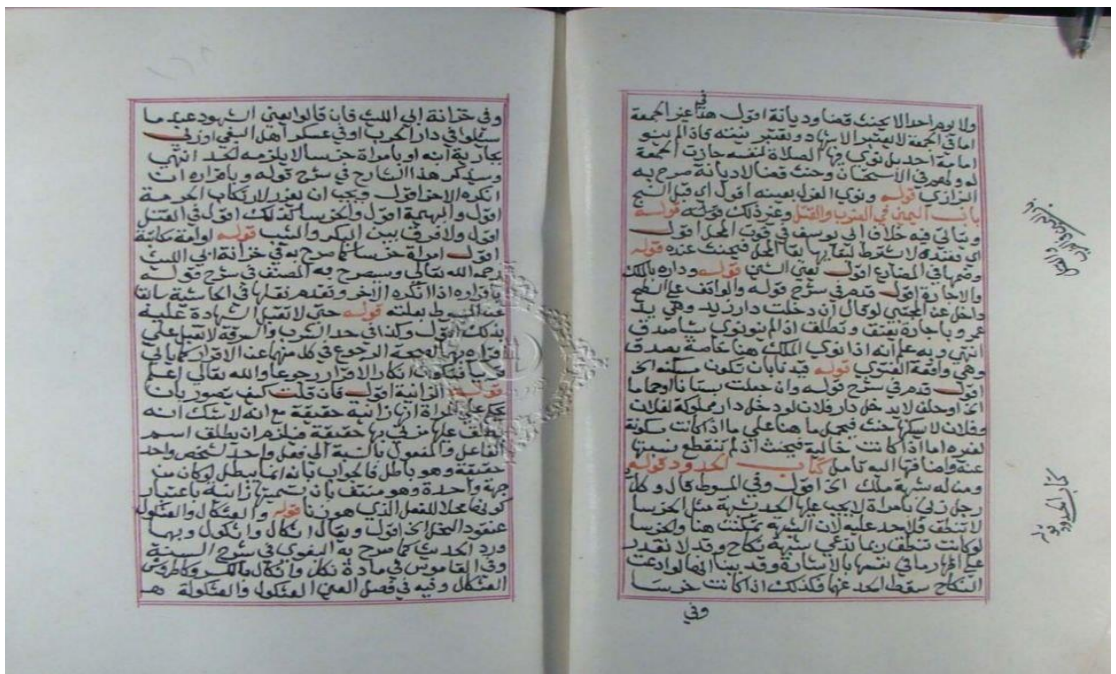 ولا يؤم احدا لا يحنث قضاء وديانة اقول هذا في غير الجمعة
اما في الجمعة لا يعتبر الاشهاد وتعتبر نيته فاذا لم ينو
امامة احد بل نوى فيها الصلاة لنفسه جازت الجمعة
لو ولهم في الاستحسان وحنث قضا لا ديانة صرح به
البزازي قوله ونوى الغزل بعينه اقول اي قبل النسج
باب اليمين في الضرب والقتل وغير ذلك قوله قوله
وسيأتي فيه خلاف ابي يوسف في فوت المحل اقول
اي بعده لا يشترط لبقائها بقا المحل فيحنث عنده قوله
وضمها في المضارع اقول يعني الشين قوله وداره بالملك
والاجارة اقول قدم في شرح قوله والواقف على السطح
داخل عن المجتبى لو قال ان دخلت دار زيد وهي بيد
عمرو باجارة يعتق وتطلق اذا لم ينو نوى شيا صدق
انتهى وبه علم انه اذا نوى الملك هنا خاصة يصدق
وهي واقعة الفتوى قوله قيدنا بان تكون مسكنه الخ
اقول قدم في شرح قوله وان جعلت بستانا او حماما
الخ او حلف لا يدخل دار فلان لو دخل دار مملوكة لفلان
وفلان لا يسكنها حنث فيحمل ما هنا على ما اذا كانت مسكونة
لغيره اما اذا كانت خالية فيحنث اذ لم تنقطع نسبتها
عنه واضافتها اليه تامل كتاب الحدود قوله
ومثاله شبهة ملك الخ اقول وفي المبسوط قال وكل
رجل زنى بامراة لا يجب عليها الحد بشبهة مثل الخرسا
لا تنطق فلا حد عليه لان الشبهة تمكنت هنا والخرسا
لو كانت تنطق ربما تدعي شبهة نكاح وقد لا تقدر
على اظهار ما في نفسها بالاشارة وقد بينا انها لو ادعت
النكاح سقط الحد عنها فكذلك اذا كانت خرسا
وفي
كتاب الحدود
وفي خزانة ابي الليث فان قالوا يعني الشهود عند ما
سئلوا في دار الحرب او في عسكر اهل البغي او زنى
بجارية ابنه او بامراة خرسا لا يلزمه الحد انتهى
وسيذكر هذا الشارح في شرح قوله وباقراره ان
انكره الاخر اقول ويجب ان يعزر لارتكاب الحرمة
اقول والبهيمة اقول والخرسا كذلك اقول في القتل
اقول ولا فرق بين البكر والثيب قوله او امة مكاتبة
اقول امراة خرسا كما صرح به في خزانة ابي الليث
رحمه الله تعالى وسيصرح به المصنف في شرح قوله
باقراره اذا انكره الاخر وتقدم نقلها في الحاشية سابقا
عن المبسوط بعلته قوله حتى لا تقبل الشهادة عليه
بذلك اقول وكذا في حد الشرب والسرقة لا تقبل على
اقراره بها لصحة الرجوع في كل منها عن الاقرار كما ياتي
فيها فيكون انكار الاقرار رجوعا والله تعالى اعلم
قوله الزانية اقول فان قلت كيف يتصور بان
على المراة انها زانية حقيقة مع انه لا شك انه
يطلق على من زنى بها حقيقة فيلزم ان يطلق اسم
الفاعل والمفعول بالنسبة الى فعل واحد لشخص واحد
حقيقة وهو باطل فالجواب بانه انما يبطل لو كان من
جهة واحدة وهو منتف بان تسميتها زانية باعتبار
كونها محلا للفعل الذي هو زنا قوله والعثكال والعثكول
عنقود النخل الخ اقول ويقال اثكال واثكول وبهما
ورد الحديث كما صرح به البغوي في شرح السنة
وفي القاموس في مادة ثكل واثكال بالكسر وكاطروش
العثكال وفيه في فصل العين العثكول والعثكولة هـ